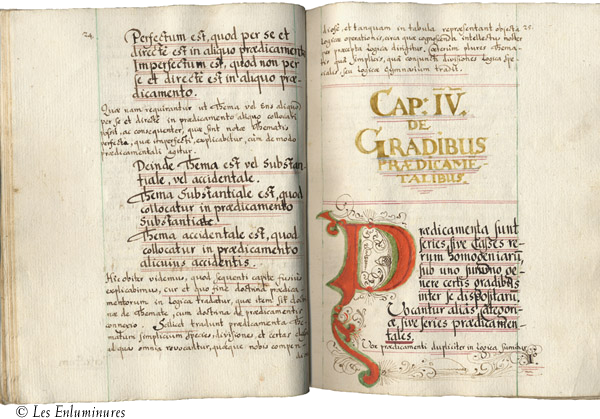 24.
Perfectum est, quod per se et
directè est in aliquo prædicamento
Imperfectum est, quod non per
se et directè est in aliquo præ-
dicamento.
Quæ nam requirantur ut thema vel Ens aliquod
per se et directè in prædicamento aliquo collocari
possit, ac consequenter, quæ sint notæ thematis
perfecti, quæ imperfecti, explicabitur, cum de modo
prædicamentali agitur.
Deinde thema est vel substan-
tiale, vel accidentale.
Thema substantiale est, quod
collocatur in prædicamento
substantiæ.
Thema accidentale est, quod
collocatur in prædicamento
alicuius accidentis.
Hic obiter videmus, quod sequenti capite fusius
explicabimus, cur et quo fine doctrina prædica-
mentorum in Logica tradatur, quæ item sit doctri-
næ de Themate, cum doctrina de prædicamentis
connexio. Scilicet tradunt prædicamenta The-
matum simplicium species, divisiones et certas classes
aliquas omnia revocantur, quæque nobis compen-
25.
diosè, et tanquam in tabula repræsentant objecta
Logicæ operationis, circa quæ cognoscenda intellectus noster
per præcepta Logica dirigitur. cæterùm plures thema-
tis quà simplicis, quà conjuncti divisiones Logica spe-
cialis, seu Logicæ Gymnasium tradit.
CAP: IV.
DE
GRADIBUS
PRÆDICAME-
TALIBUS.
Prædicamenta sunt
series, sive classes re-
rum homogeniarum,
sub uno summo ge-
nere certis gradibus
inter se dispositarum.
Vocantur aliàs categori-
æ, sive series prædicamen-
tales.
Vox prædicamenti dupliciter in Logica sumitur
© Les Enluminures